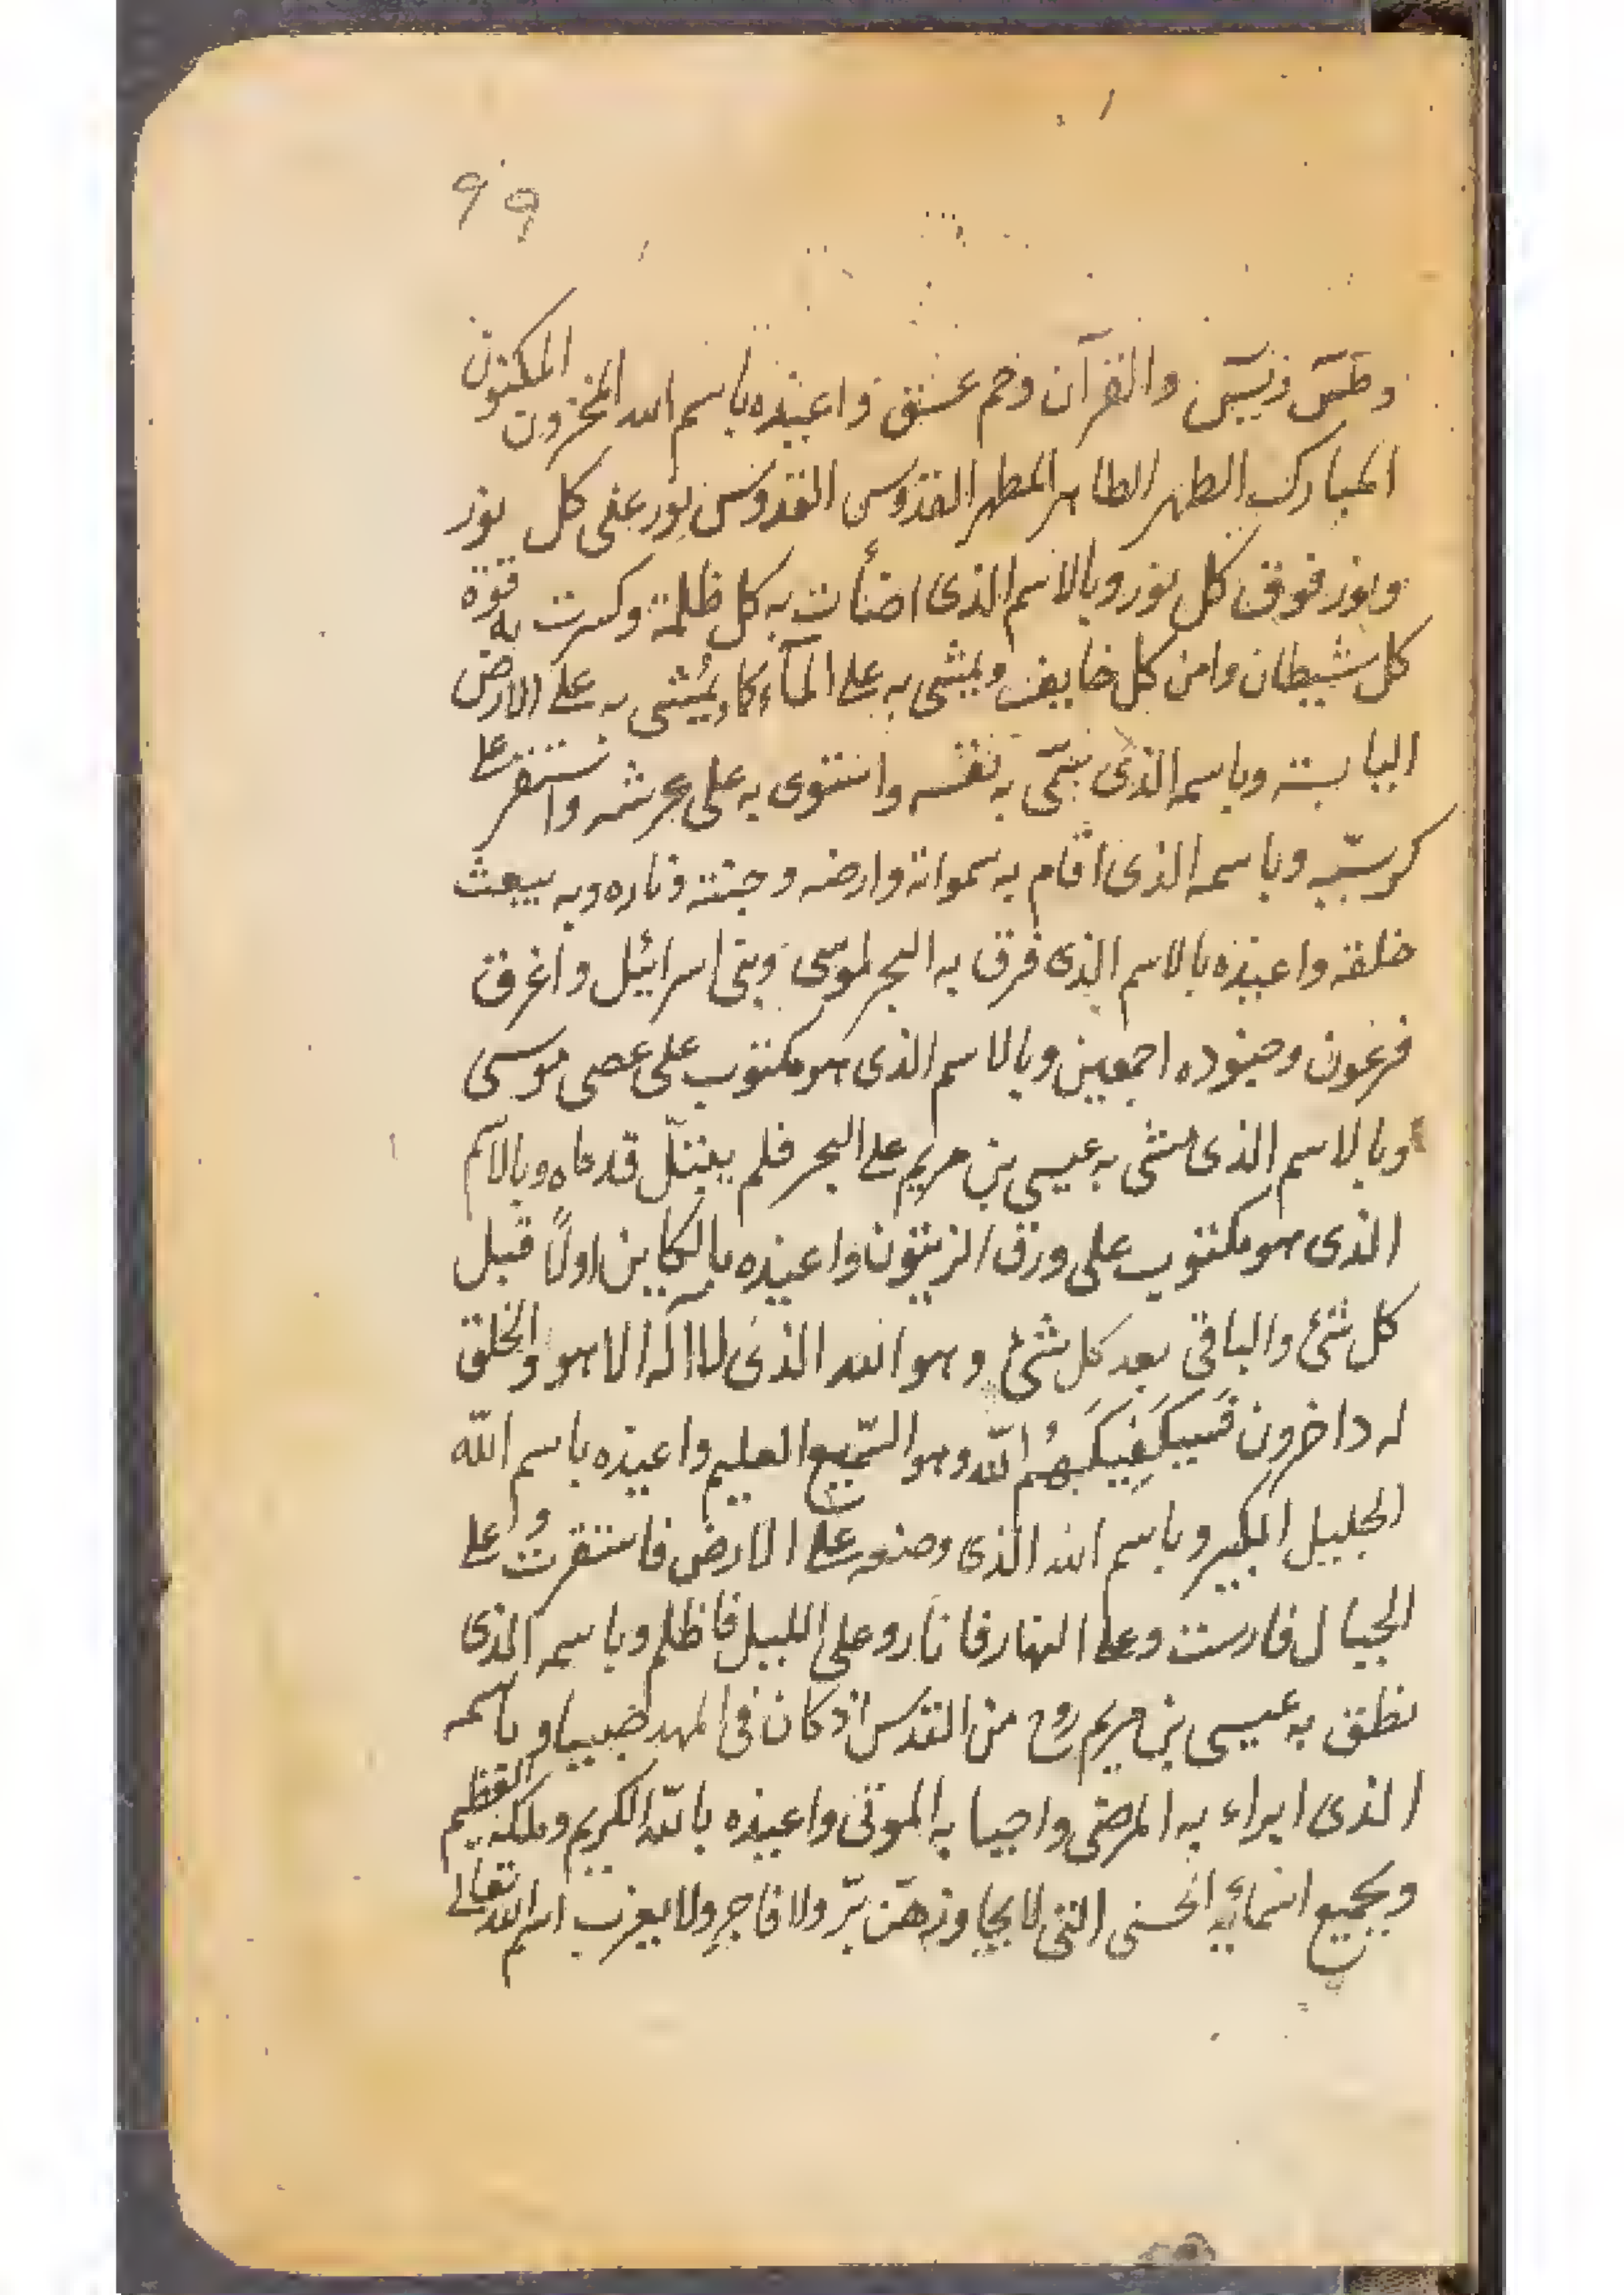 ٩٩
وطس ويس والقرآن وحم عسق واعيذه باسم الله المخزون المكنون
المبارك الطهر الطاهر المطهر القدوس القدوس نور على كل نور
ونور فوق كل نور وبالاسم الذى اضأت به كل ظلمة وكسرت به قوة
كل شيطان وامن كل خايف ويمشى به على المآء كما يُمشى به على الارض
اليابسة وباسمه الذى سمّى به نفسه واستوى به على عرشه واستقر على
كرسيّه وباسمه الذى اقام به سمواته وارضه وجنته وناره وبه يبعث
خلقه واعيذه بالاسم الذى فرق به البحر لموسى وبنى اسرائيل واغرق
فرعون وجنوده اجمعين وبالاسم الذى هو مكتوب على عصى موسى
وبالاسم الذى مشى به عيسى بن مريم على البحر فلم يبتلّ قدماه وبالاسم
الذى هو مكتوب على ورق الزيتون واعيذه بالكاين اولاً قبل
كل شئ والباقى بعد كل شئ وهو الله الذى لا اله الا هو والخلق
له داخرون فَسَيَكفِيكَهُمُ اللّه وهو السّميع العليم واعيذه باسم اللّه
الجليل الكبير وباسم الله الذى وضعه على الارض فاستقرت وعلى
الجبال فارست وعلى النهار فانار وعلى الليل فاظلم وباسمه الذى
نطق به عيسى بن مريم روح من القدس اذ كان فى المهد صبيا وباسمه
الذى ابراء به المرضى واحيا به الموتى واعيذه باللّه الكريم وملكه العظيم
وبجميع اسمائه الحسنى التى لا يجاوزهنّ برّ ولا فاجر ولا يعزب اسم الله تعالى